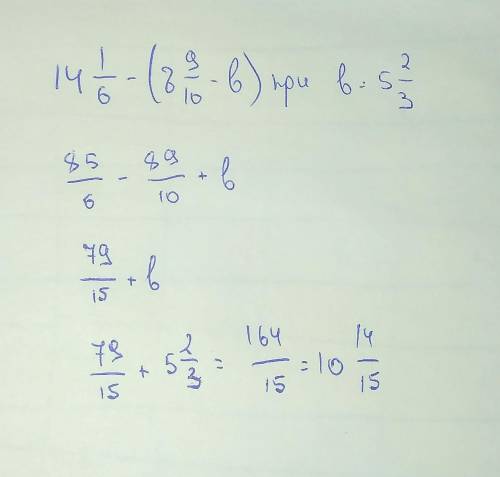 14 1/6 - (8 9/10 - в) при в = 5 2/3
85/6 - 89/10 + в
79/15 + в
79/15 + 5 2/3 = 164/15 = 10 14/15